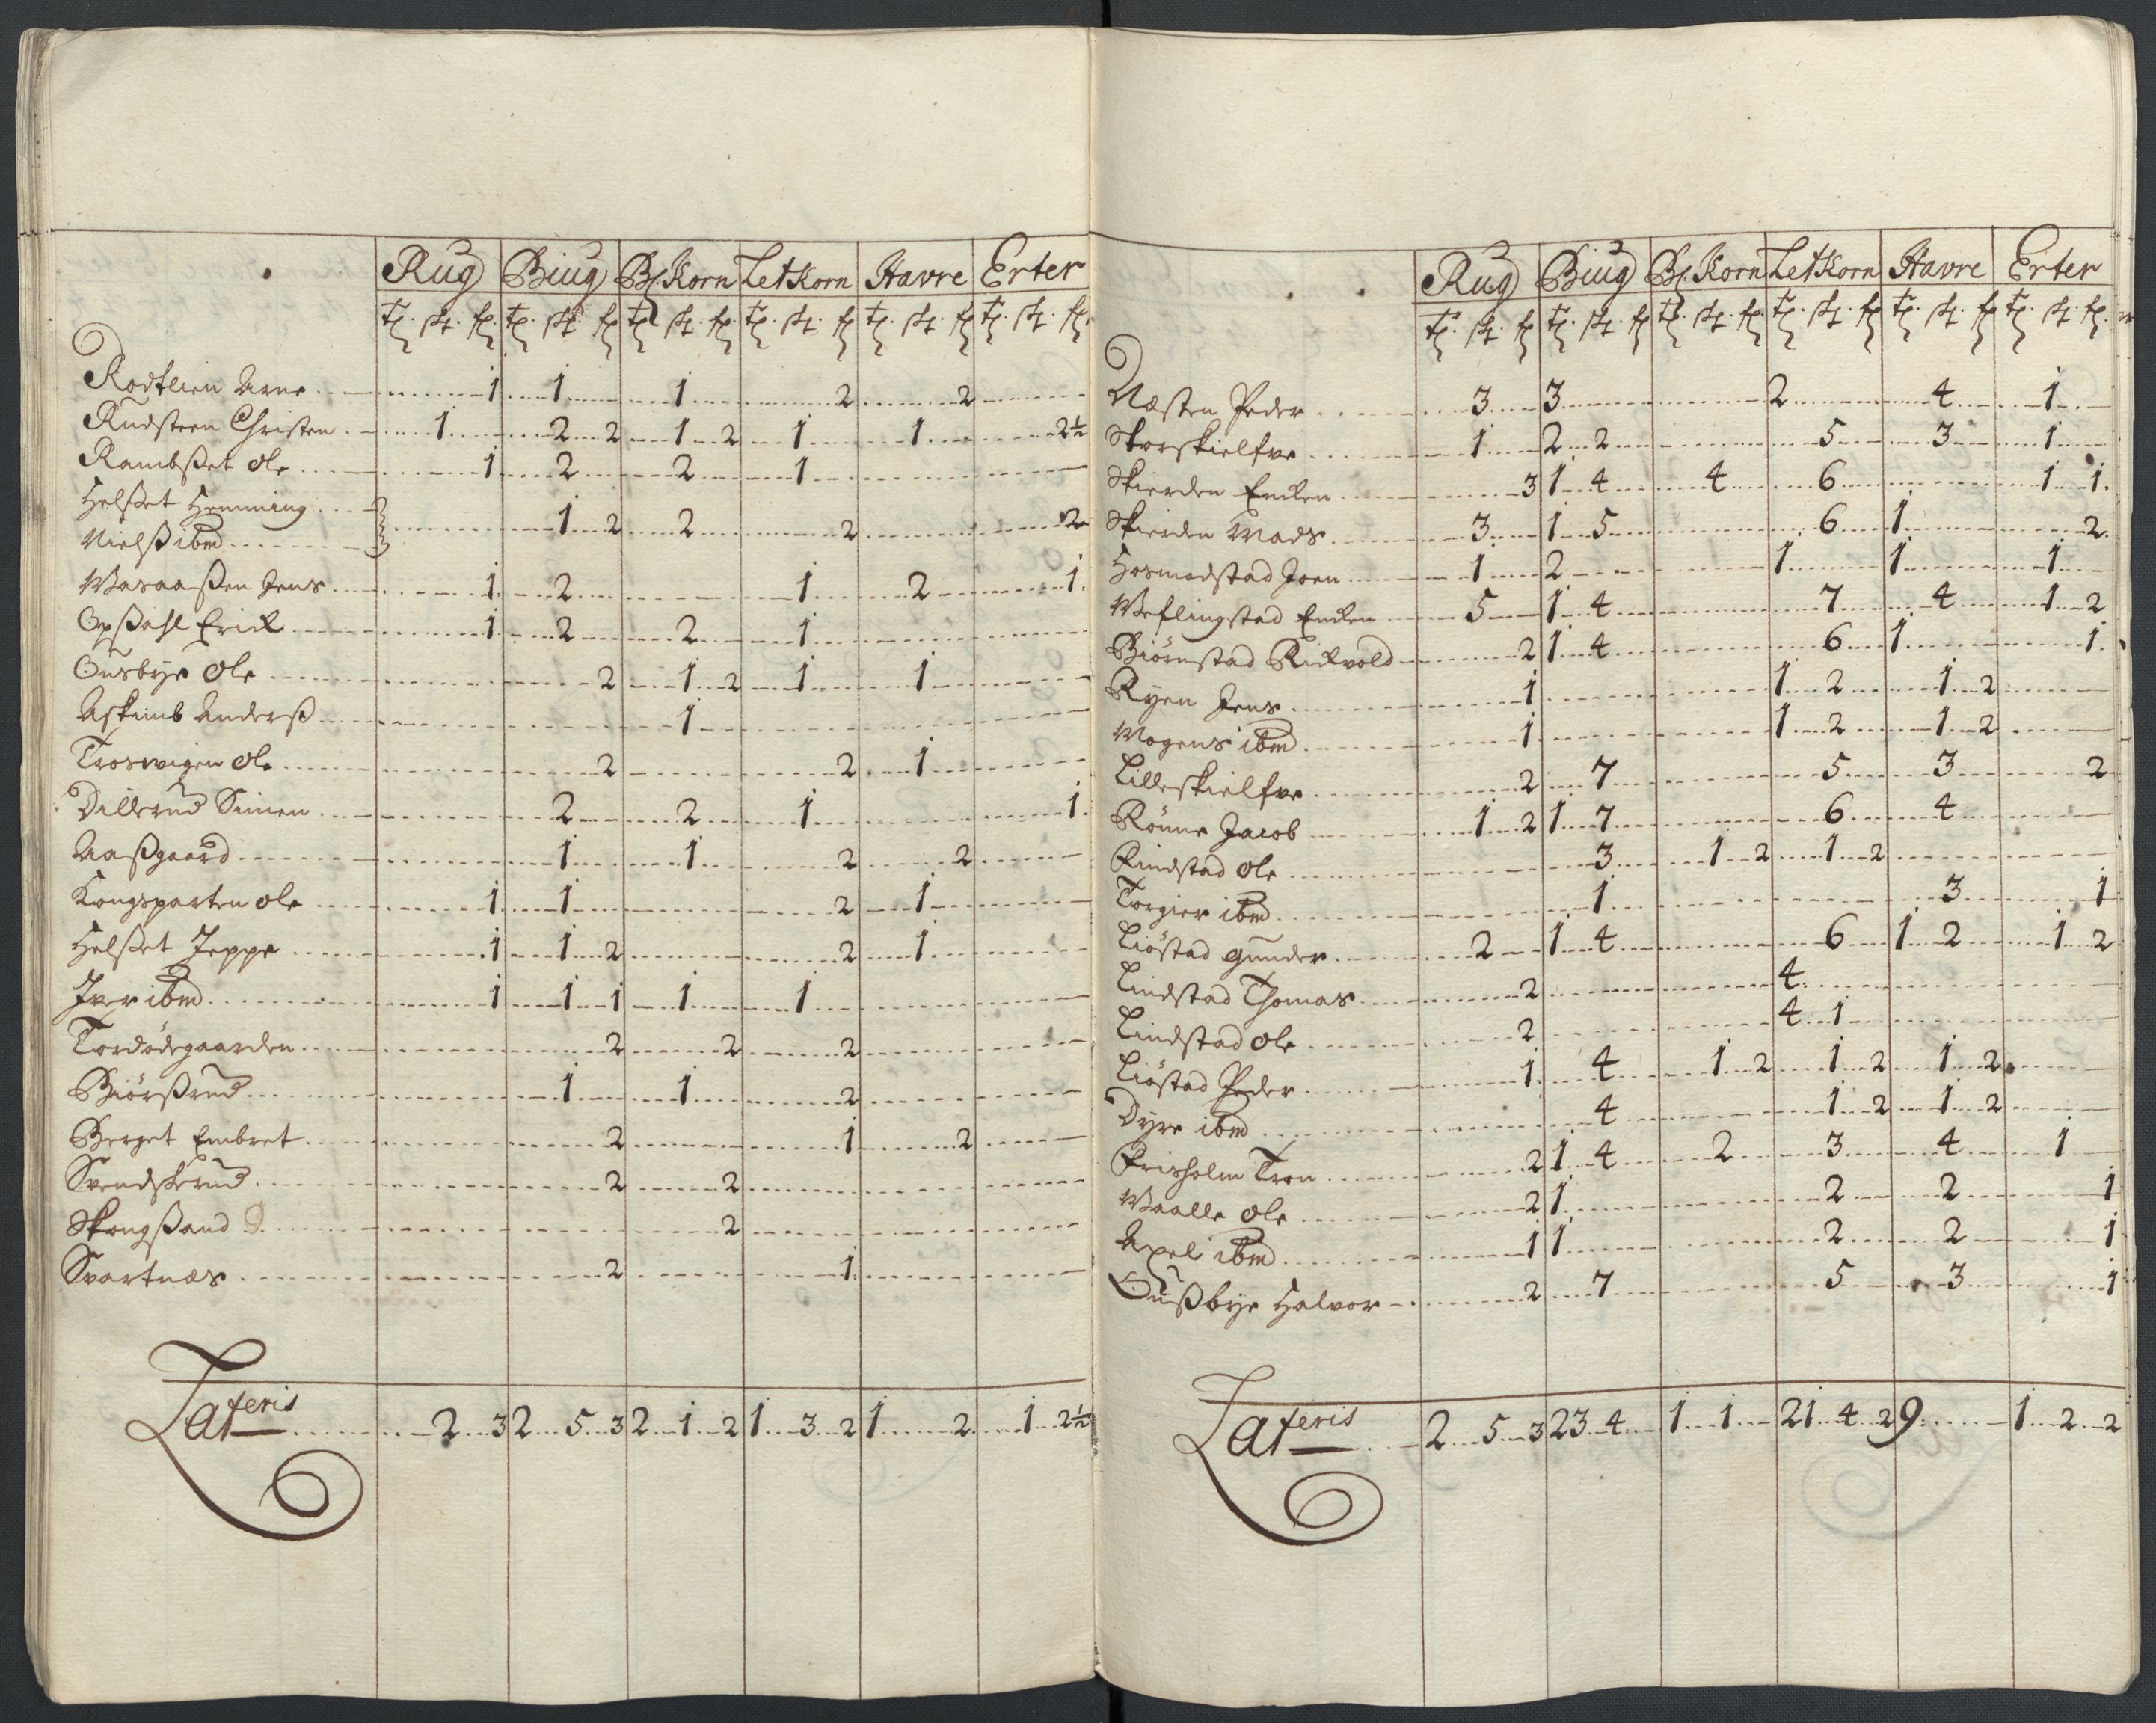 Rug Biug Bl. Korn Let Korn Havre Erter
Rodtlien Arne 1 1 1 2 2
Rudsteen Christen 1 2 2 1 2 1 1 2½
Rambßet Ole 1 2 2 1
Helßet Hemming
Nielß ibm 1 2 2 2 2
Wasaaßen Jens 1 2 1 2 1
Opßahl Erick 1 2 2 1
Ousbye Ole 2 1 2 1 1
Askimb Anderß 1
Troswigen Ole 2 2 1
Dillerud Simen 2 2 1 1
Aaßgaard 1 1 2 2
Kongsparten Ole 1 1 2 1
Helßet Jeppe 1 1 2 2 1
Iver ibm 1 1 1 1 1
Tordödegaarden 2 2 2
Biörßrud 1 1 2
Berget Embret 2 1 2
Svendskerud 2 2
Skougßand 2
Svartnæs 2 1
Lateris 2 3 2 5 3 2 1 2 1 3 2 1 2 1 2½
Rug Biug Bl. Korn Let Korn Havre Erter
Næsten Peder 3 3 2 4 1
Storskielfve 1 2 2 5 3 1
Skierden Encken 3 1 4 4 6 1 1
Skierden Mads 3 1 5 6 1 2
Hosmadstad Joen 1 2 1 1 1
Weflingstad Encken 5 1 4 7 4 1 2
Biörnstad Rickvold 2 1 4 6 1 1
Ryen Jens 1 1 2 1 2
Mogens ibm 1 1 2 1 2
Lilleskielfve 2 7 5 3 2
Rönne Jacob 1 2 1 7 6 4
Rindstad Ole 3 1 2 1 2
Torgier ibm 1 3 1
Liöstad Gunder 2 1 4 6 1 2 1 2
Lindstad Thomas 2 4
Lindstad Ole 2 4 1
Liöstad Peder 1 4 1 2 1 2 1 2
Dyre ibm 4 1 2 1 2
Frisholm Tron 2 1 4 2 3 4 1
Waalle Ole 2 1 2 2 1
Axel ibm 1 1 2 2 1
Oußbye Halvor 2 7 5 3 1
Lateris 2 5 3 23 4 1 1 21 4 2 9 1 2 2